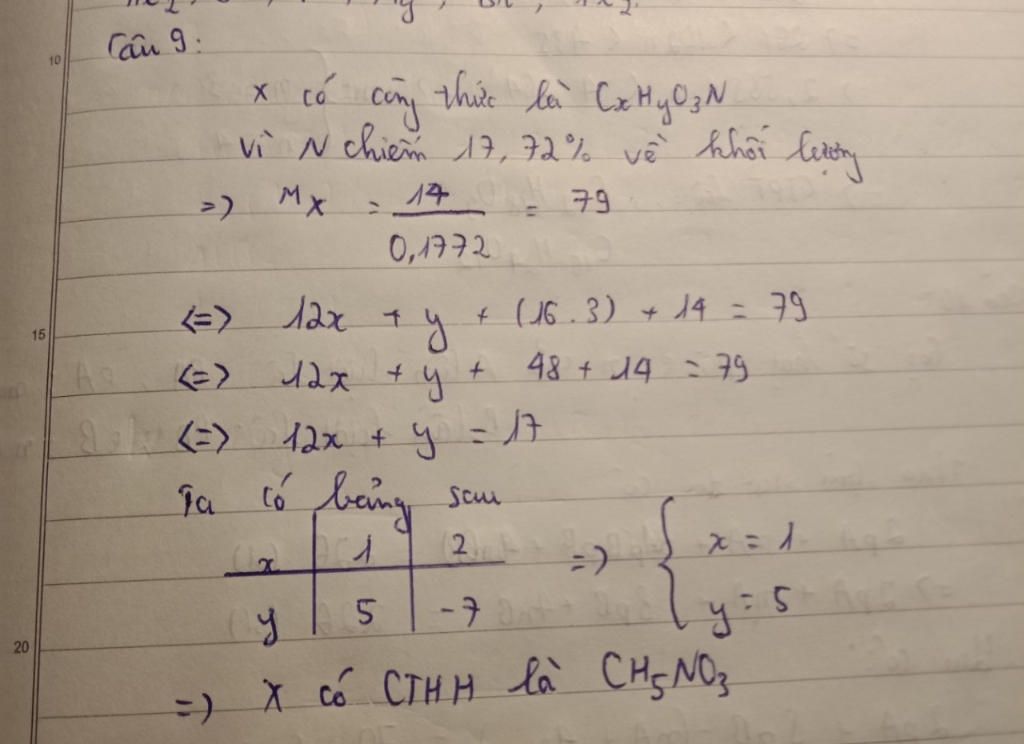 10
Câu 9:
X có công thức là CxHyO3N
Vì N chiếm 17,72% về khối lượng
=> MX = 14 / 0,1772 = 79
15
<=> 12x + y + (16.3) + 14 = 79
<=> 12x + y + 48 + 14 = 79
<=> 12x + y = 17
Ta có bảng sau
x | 1 | 2 => { x = 1
y | 5 | -7 y = 5
20
=> X có CTHH là CH5NO3